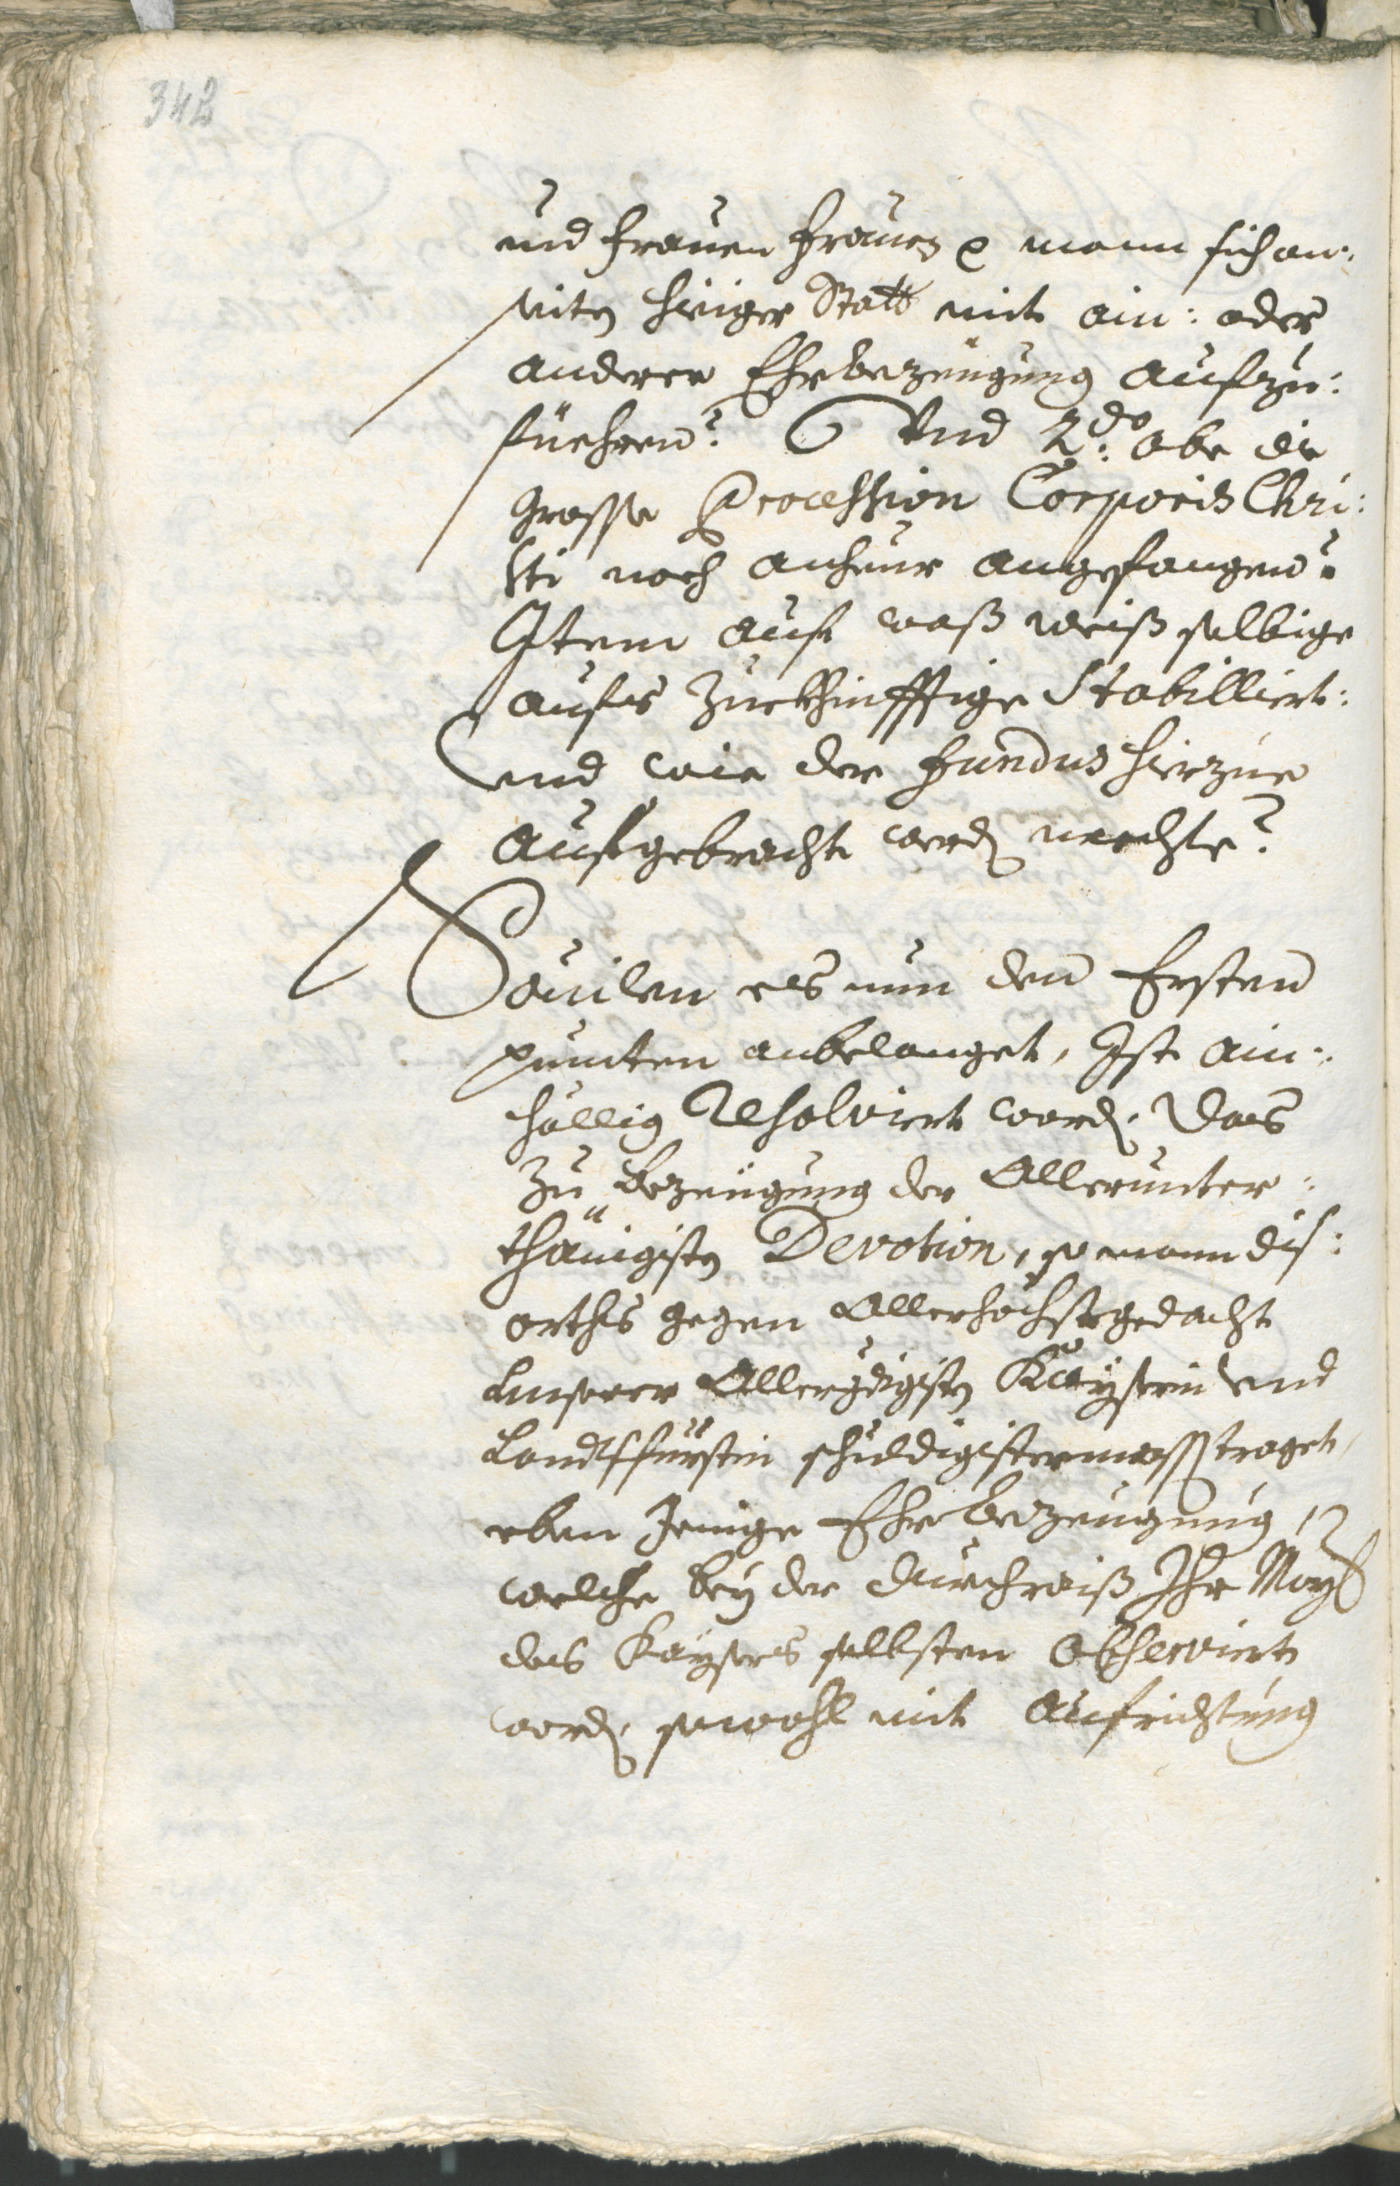 342
und frauen frauen ρ mann sich an:
seiten hieiger Statt mit ain: oder
anderer Ehrbezeügung aufzu:
füehren? Und 2.do obe die
grosse Procession Corporis Chri:
sti noch anheur angefangen?
Item auf waß weiß selbige
aufs Zuekhinfftige Stabilliert:
und wie der fundus hierzue
aufgebracht werden mechte?
Souilen es nun den Ersten
puncten anbelanget, Ist ain:
hällig Resolviert worden. Das
zu bezeügung der Allerunter:
thänigisten Devotion, so mann dis:
orths gegen Allerhöchstgedacht
Unserer Allergdigisten Kayserin und
Landtsfürstin schuldigistermassen traget,
eben Jenige Ehrbezeugung,
welche bey der Durchraiß Ihr May:
des Kaysers selbsten observiert
worden, sowohl mit Aufrichtung